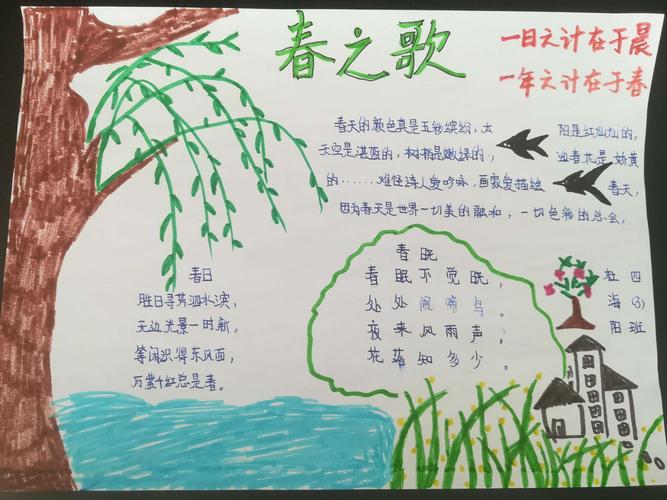 春之歌
一日之计在于晨
一年之计在于春
春天的颜色真是五彩缤纷,太阳是红灿灿的,
天空是湛蓝的,树梢是嫩绿的,迎春花是娇黄
的……难怪诗人爱吟咏,画家爱描绘春天,
因为春天是世界一切美的融和,一切色彩的总会。
春日
胜日寻芳泗水滨,
无边光景一时新,
等闲识得东风面,
万紫千红总是春。
春晓
春眠不觉晓,
处处闻啼鸟。
夜来风雨声,
花落知多少。
四(3)班
杜海阳